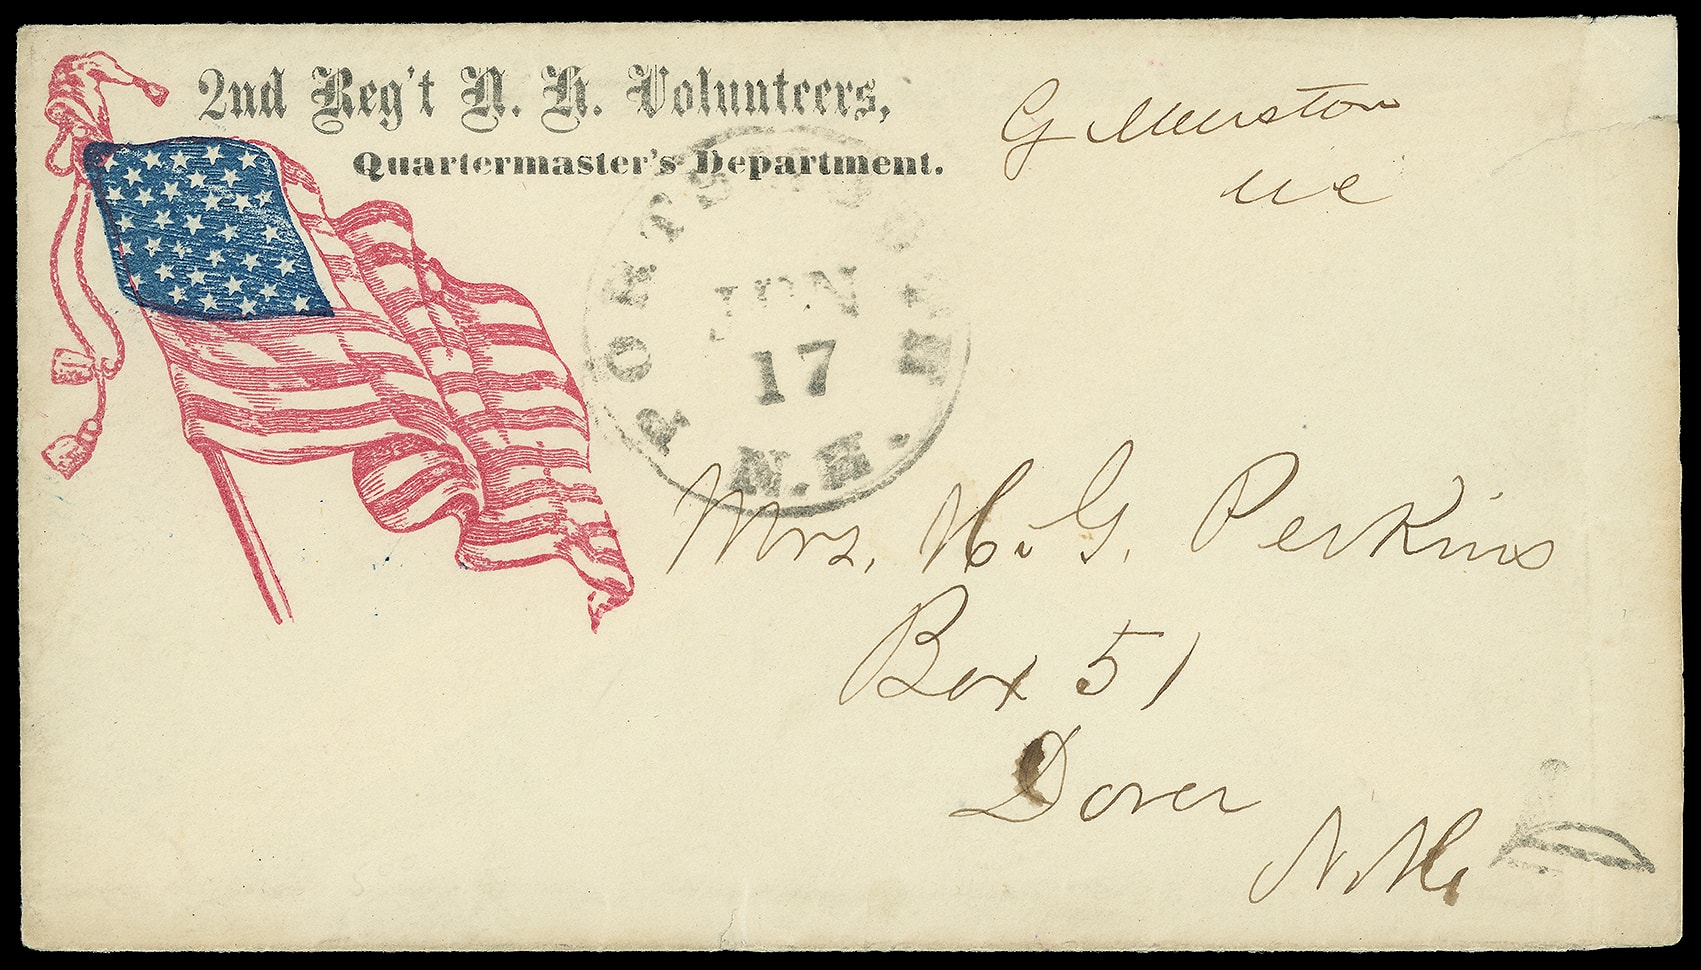 2nd Reg't N. H. Volunteers,
Quartermaster's Department.
G Marston
MC
PORTSMOUTH
JUN
17
N.H.
Mrs. H. G. Perkins
Box 51
Dover
N.H.